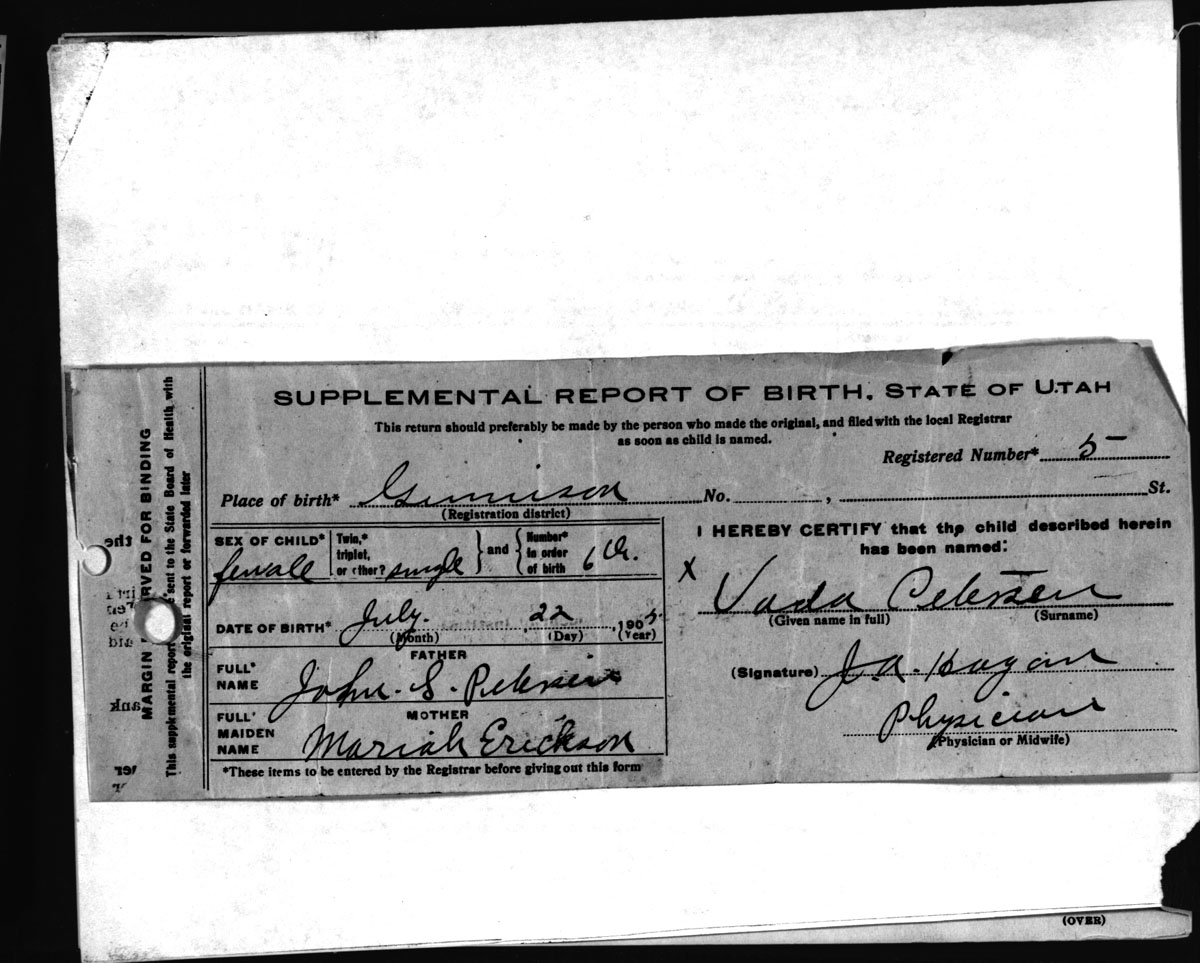 SUPPLEMENTAL REPORT OF BIRTH. STATE OF UTAH
This return should preferably be made by the person who made the original, and filed with the local Registrar
as soon as child is named.
Registered Number* 5
Place of birth* Gunnison No. , St.
(Registration district)
MARGIN RVED FOR BINDING
This supplemental report sent to the State Board of Health with
the original report or forwarded later
SEX OF CHILD* female
Twin,* triplet, or other? single
and
Number* in order of birth 6th.
DATE OF BIRTH* July. 22, 1905
(Month) (Day) (Year)
FATHER
FULL* NAME John. S. Petersen
MOTHER
FULL* MAIDEN NAME Mariah Erickson
*These items to be entered by the Registrar before giving out this form
I HEREBY CERTIFY that the child described herein
has been named:
X Vada Petersen
(Given name in full) (Surname)
(Signature) J. A. Hagan
Physician
(Physician or Midwife)
(OVER)